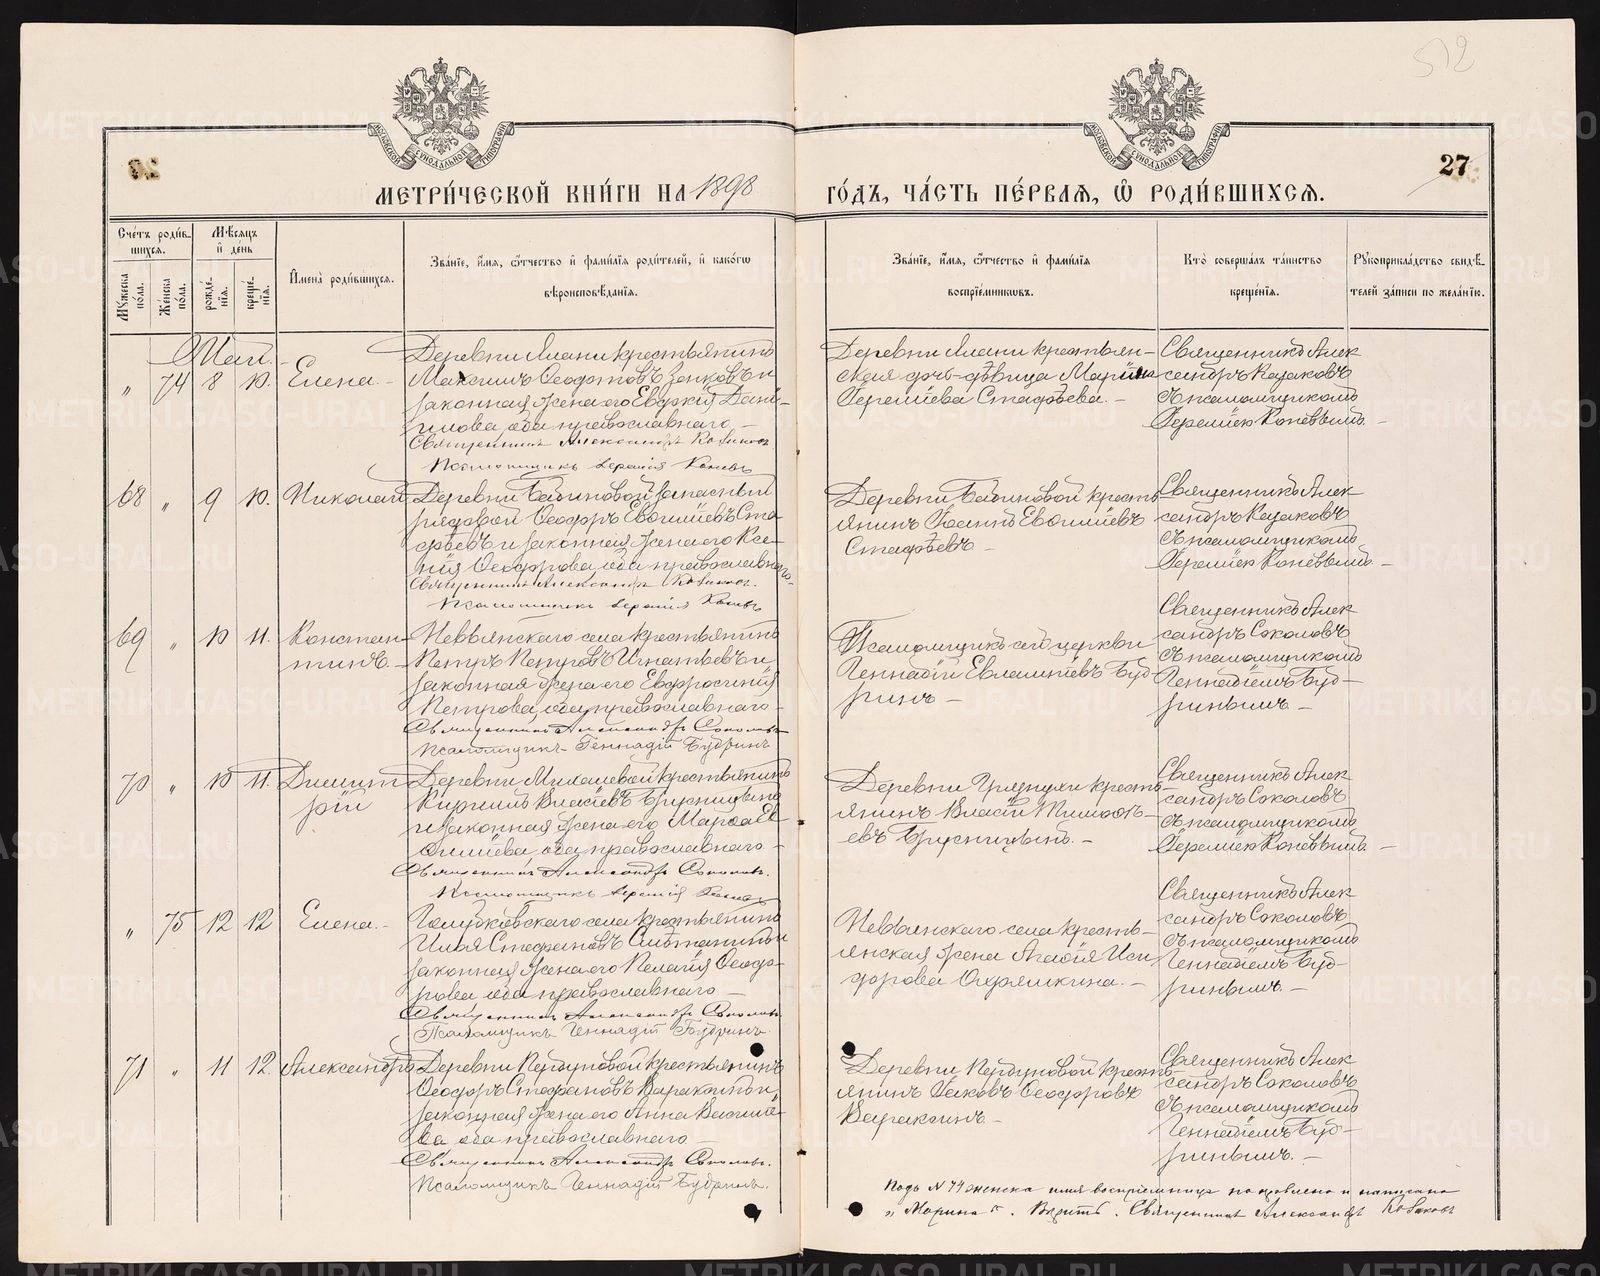 512
27
МЕТРИ́ЧЕСКОЙ КНИ́ГИ НА 1898 ГО́ДЪ, ЧА́СТЬ ПЕ́РВАЯ, Ѿ РОДИ́ВШИХСЯ.
Сче́тъ роди́вшихся.
Мѣ́сяцъ и де́нь
Му́жеска по́ла.
Же́нска по́ла.
рожде́нїя.
креще́нїя.
Имена̀ роди́вшихся.
Зва́нїе, и́мя, о́тчество и фами́лїя роди́телей, и како́гѡ
вѣроисповѣ́данїя.
Зва́нїе, и́мя, о́тчество и фами́лїя
воспрїе́мникѡвъ.
Кто̀ соверша́лъ та́инство
креще́нїя.
Рукоприкла́дство свидѣ́-
телей за́писи по жела́нїю.
Май.
„ 74 8 10. Елена. -
Деревни крестьянинъ
Максимъ Ѳеодотовъ Зенковъ и
законная жена его Евдокія Дани-
лова, оба православнаго. -
Священникъ Александръ Казаковъ
Псаломщикъ Іеремія Коневъ
Деревни крестьян-
ская дочь-дѣвица Марина
Іереміева Стафѣева. -
Священникъ Алек
сандръ Казаковъ
съ псаломщикомъ
Іереміею Коневымъ. -
68 „ 9 10. Николай
Деревни Бабиновой запасный
рядовой Ѳеодоръ Евѳиміевъ Ста-
фѣевъ и законная жена его Ксе-
нія Ѳеодорова, оба православнаго.
Священникъ Александръ Казаковъ.
Псаломщикъ Іеремія Коневъ
Деревни Бабиновой кресть-
янинъ Іоаннъ Евѳиміевъ
Стафѣевъ -
Священникъ Алек
сандръ Казаковъ
съ псаломщикомъ
Іереміею Коневымъ. -
69 „ 10 11. Констан-
тинъ. -
Невьянскаго села крестьянинъ
Петръ Петровъ Игнатьевъ и
законная жена его Евфросинія
Петрова, оба православнаго -
Священникъ Александръ Соколовъ
Псаломщикъ Геннадій Будринъ
Псаломщикъ сей церкви
Геннадій Евлампіевъ Буд-
ринъ -
Священникъ Алек
сандръ Соколовъ
съ псаломщикомъ
Геннадіемъ Буд-
ринымъ. -
70 „ 10 11. Димит-
рій
Деревни крестьянинъ
Власіевъ Брусницынъ
и законная жена его Марѳа Ев-
ѳиміева, оба православнаго -
Священникъ Александръ Соколовъ.
Псаломщикъ Іеремія Коневъ
Деревни Грязнухи кресть-
янинъ Власій Тимоѳе-
евъ Брусницынъ. -
Священникъ Алек
сандръ Соколовъ
съ псаломщикомъ
Іереміею Коневымъ. -
„ 75 12 12 Елена. -
Голубковскаго села крестьянинъ
Илья Стефановъ и
законная жена его Пелагія Ѳеодо-
рова, оба православнаго -
Священникъ Александръ Соколовъ.
Псаломщикъ Геннадій Будринъ.
Невьянскаго села кресть-
янская жена Агаѳія Иси-
дорова Охрямкина. -
Священникъ Алек
сандръ Соколовъ
съ псаломщикомъ
Геннадіемъ Буд-
ринымъ. -
71 „ 11 12. Александръ
Деревни Первуновой крестьянинъ
Ѳеодоръ Стефановъ Вараксинъ и
законная жена его Анна Василье-
ва, оба православнаго -
Священникъ Александръ Соколовъ.
Псаломщикъ Геннадій Будринъ.
Деревни Первуновой кресть-
янинъ Іаковъ Ѳеодоровъ
Вараксинъ. -
Священникъ Алек
сандръ Соколовъ
съ псаломщикомъ
Геннадіемъ Буд-
ринымъ. -
Подъ № 74 женска имя воспріемницы поправлено и написано
„Марина“. Вѣрить. Священникъ Александръ Казаковъ